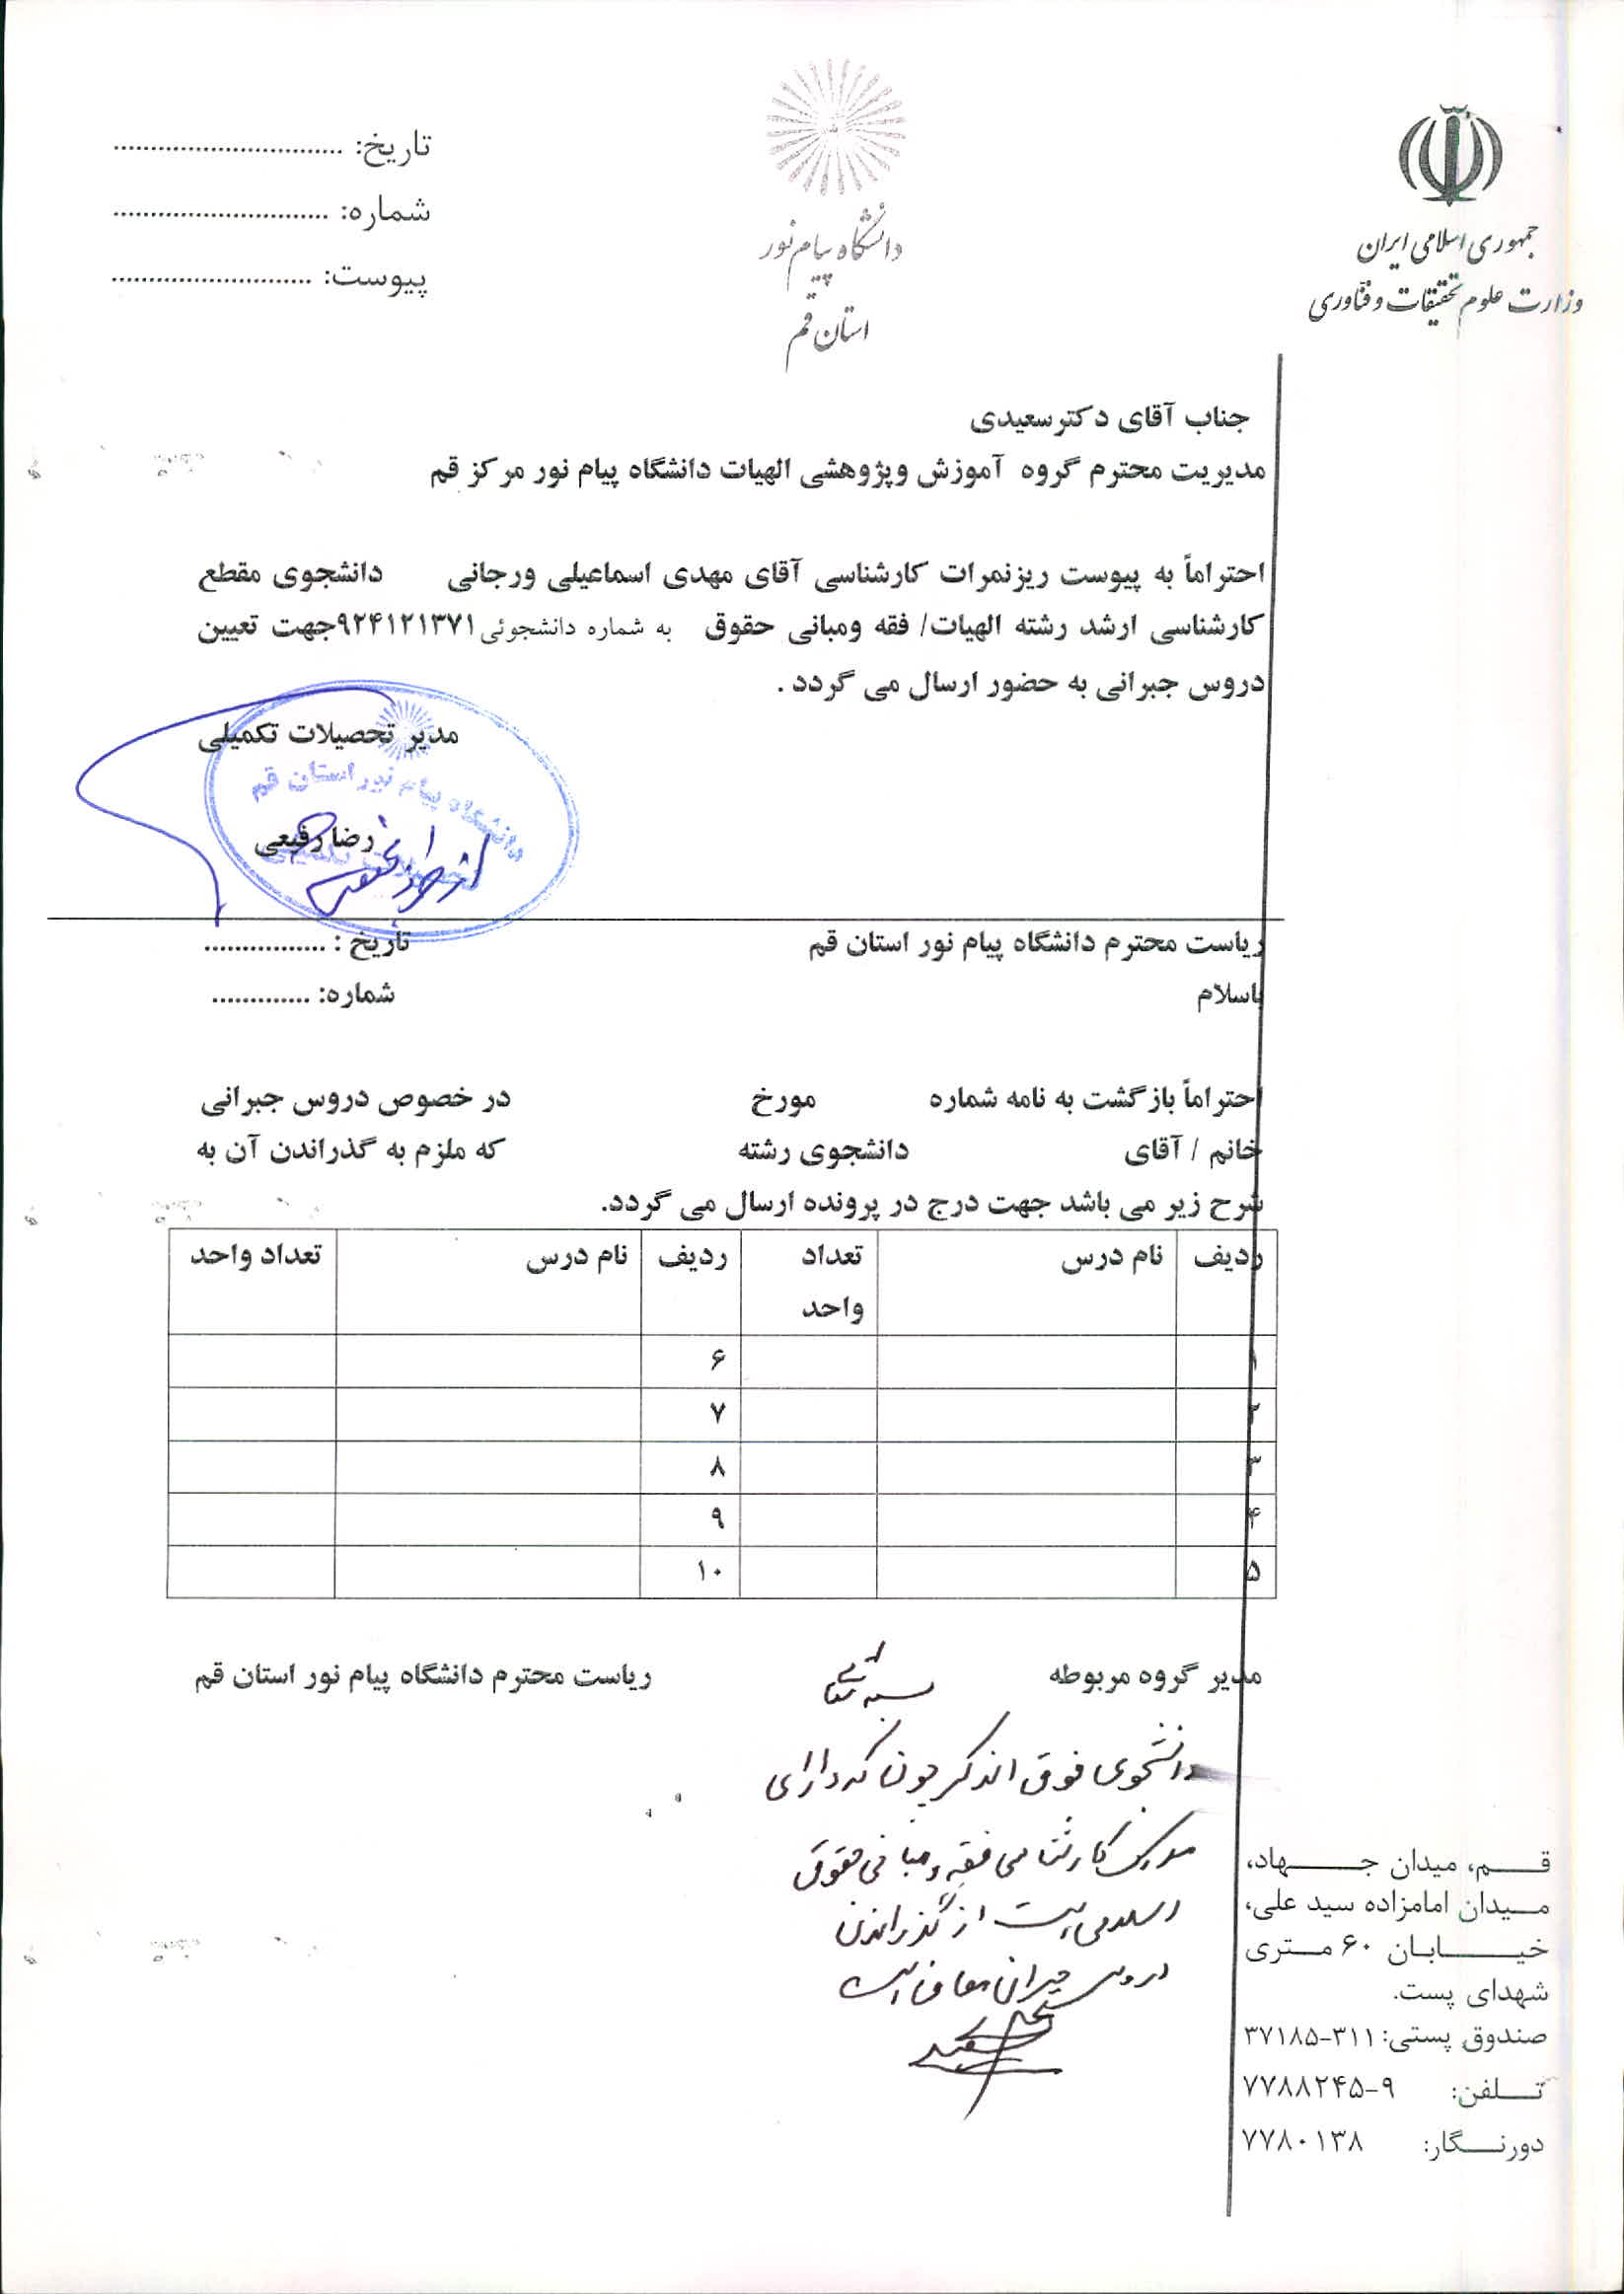 جمهوری اسلامی ایران
وزارت علوم تحقیقات و فناوری
دانشگاه پیام نور
استان قم
تاریخ: ..............................
شماره: ............................
پیوست: ..........................
جناب آقای دکترسعیدی
مدیریت محترم گروه آموزش وپژوهشی الهیات دانشگاه پیام نور مرکز قم
احتراماً به پیوست ریزنمرات کارشناسی آقای مهدی اسماعیلی ورجانی دانشجوی مقطع
کارشناسی ارشد رشته الهیات/ فقه ومبانی حقوق به شماره دانشجوئی ۹۲۴۱۲۱۳۷۱جهت تعیین
دروس جبرانی به حضور ارسال می گردد .
مدیر تحصیلات تکمیلی
دانشگاه پیام نور استان قم
رضا رفیعی
تحصیلات تکمیلی
ریاست محترم دانشگاه پیام نور استان قم تاریخ : ................
باسلام شماره: .............
احتراماً بازگشت به نامه شماره مورخ در خصوص دروس جبرانی
خانم / آقای دانشجوی رشته که ملزم به گذراندن آن به
شرح زیر می باشد جهت درج در پرونده ارسال می گردد.
ردیف نام درس تعداد واحد ردیف نام درس تعداد واحد
۱ ۶
۲ ۷
۳ ۸
۴ ۹
۵ ۱۰
مدیر گروه مربوطه ریاست محترم دانشگاه پیام نور استان قم
بسمه تعالی
دانشجوی فوق الذکر چون که دارای
مدرک کارشناسی فقه و مبانی حقوق
اسلامی است از گذراندن
دروس جبرانی معاف است
قـــم، میدان جـــهاد،
میدان امامزاده سید علی،
خیـــابان ۶۰ متری
شهدای پست.
صندوق پستی: ۳۱۱-۳۷۱۸۵
تـــلفن: ۹-۷۷۸۸۲۴۵
دورنـــگار: ۷۷۸۰۱۳۸